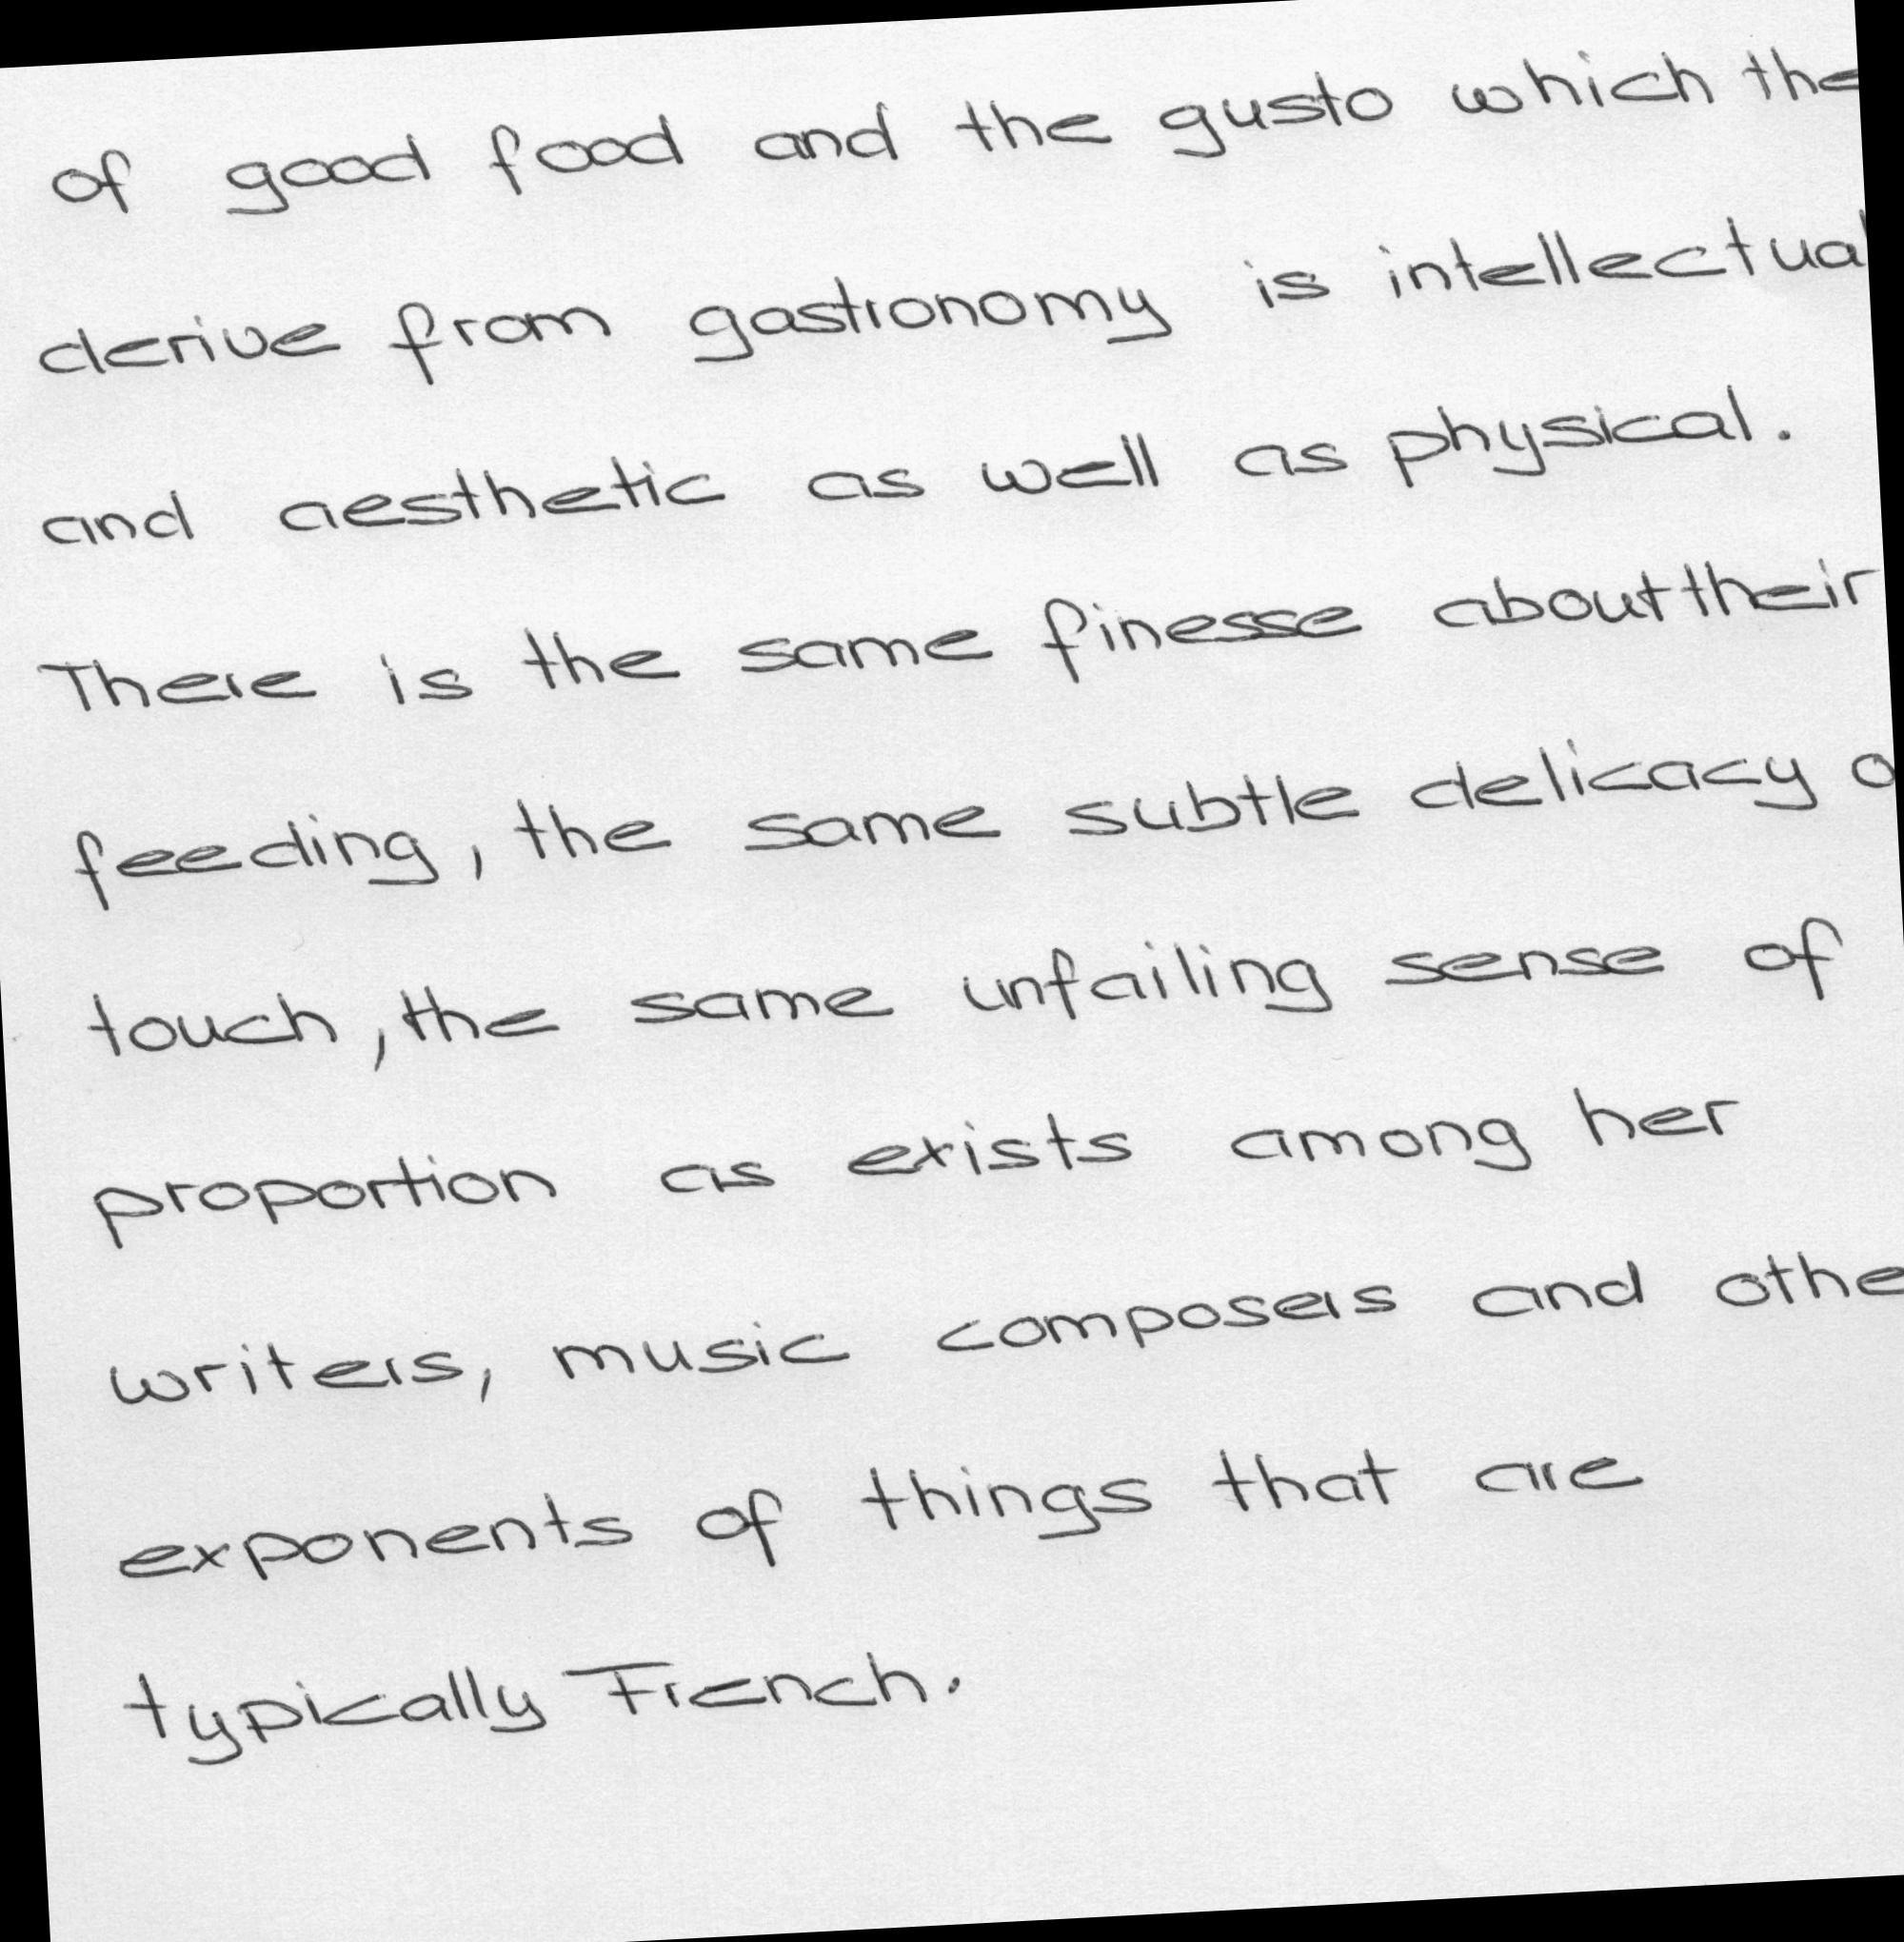 of good food and the gusto which the
derive from gastronomy is intellectual
and aesthetic as well as physical.
There is the same finesse about their
feeding, the same subtle delicacy
touch, the same unfailing sense of
proportion as exists among her
writers, music composers and othe
exponents of things that are
typically French.